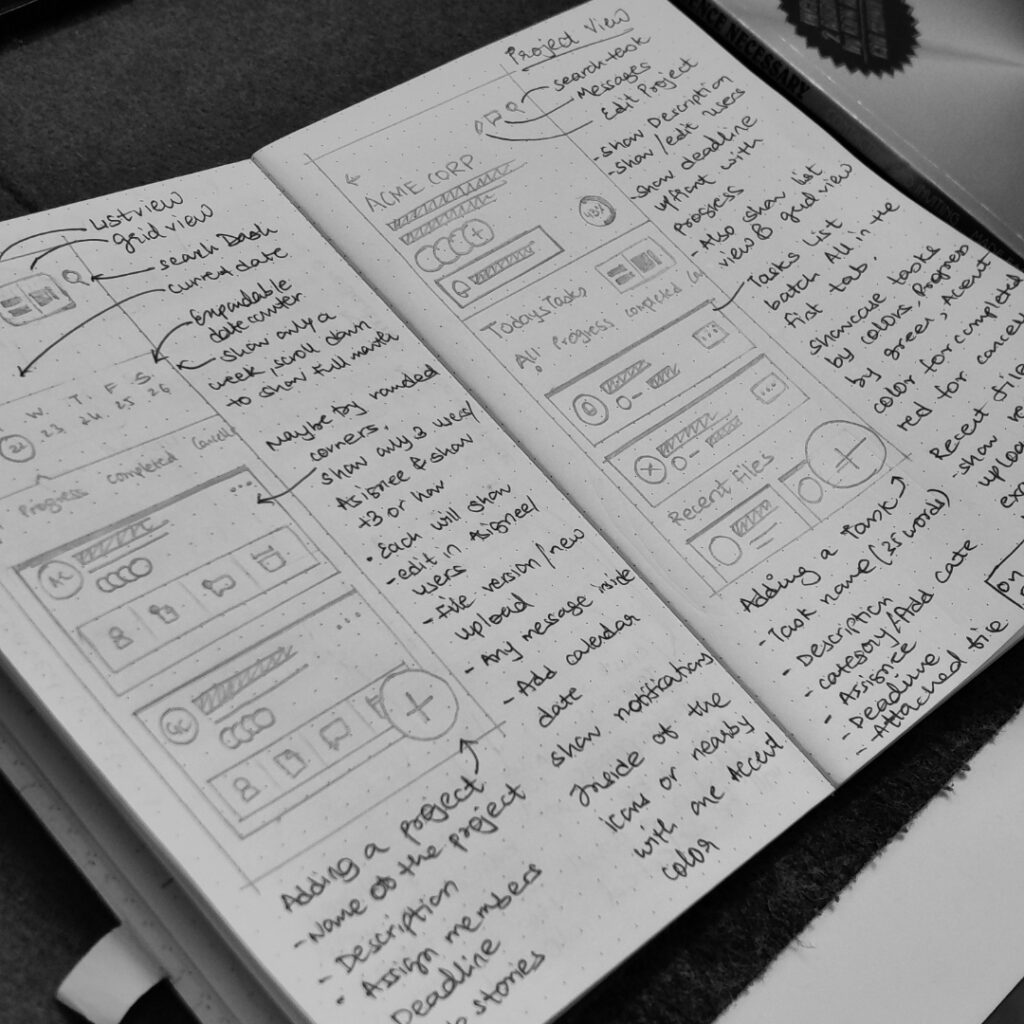 List view
grid view
search Dash
current date
Expandable
date counter
- show only a
week, scroll down
to show full month
W. T. F S.
21 23 24 25 26
Progress completed Cancelle
Maybe by rounded
corners.
- show only 3 users/
Asignee & show
+3 or how
• Each will show
- edit in Asignee/
users
- File version/new
upload
- Any message inside
- Add calendar
date
show notifications
Inside of the
icons or nearby
with one Accent
color
AC
Adding a project
- Name of the project
- Description
- Assign members
Deadline
stories
Project View
search task
Messages
Edit Project
- show Description
- show/edit users
- show deadline
with
progress
- Also show list
view & grid view
Tasks List
batch All in the
first tab.
showcase tasks
by colors, Progress
by green, Accent
color for completed
red for cancel
Recent file
- show re
upload
ACME CORP
Todays Tasks
All Progress completed Ca
Recent Files
Adding a Task
- Task name (35 words)
- Description
- category/Add cate
- Assignee
- Deadline
- Attached file
ENCE NECESSARY